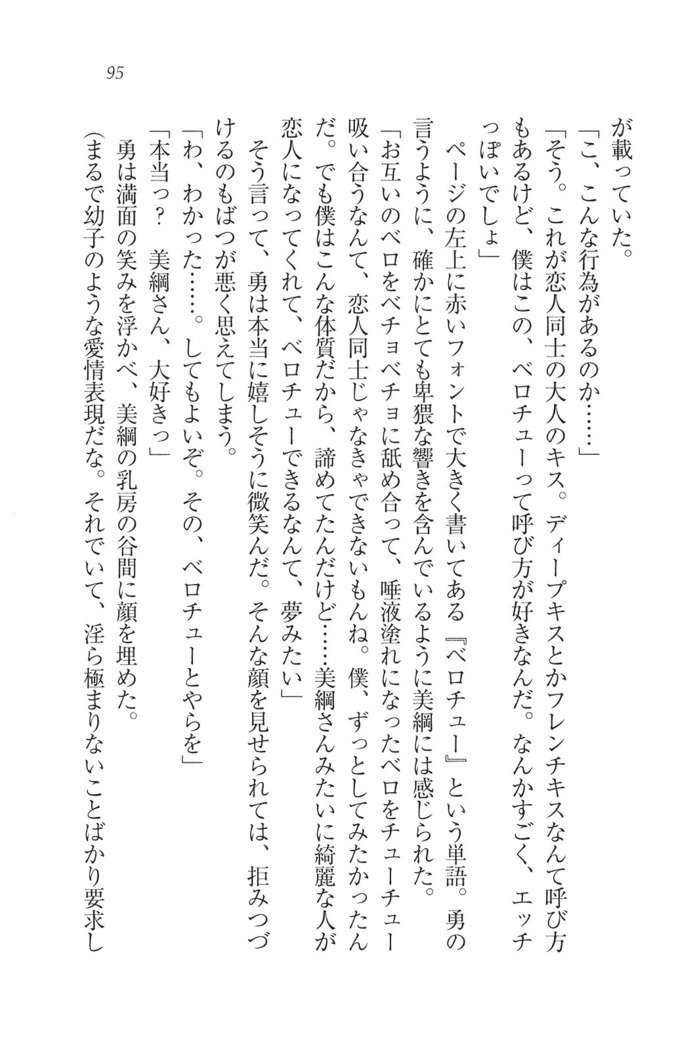 95
が載っていた。
「こ、こんな行為があるのか……」
「そう。これが恋人同士の大人のキス。ディープキスとかフレンチキスなんて呼び方
もあるけど、僕はこの、ベロチューって呼び方が好きなんだ。なんかすごく、エッチ
っぽいでしょ」
ページの左上に赤いフォントで大きく書いてある『ベロチュー』という単語。勇の
言うように、確かにとても卑猥な響きを含んでいるように美綱には感じられた。
「お互いのベロをベチョベチョに舐め合って、唾液塗れになったベロをチューチュー
吸い合うなんて、恋人同士じゃなきゃできないもんね。僕、ずっとしてみたかったん
だ。でも僕はこんな体質だから、諦めてたんだけど……美綱さんみたいに綺麗な人が
恋人になってくれて、ベロチューできるなんて、夢みたい」
そう言って、勇は本当に嬉しそうに微笑んだ。そんな顔を見せられては、拒みつづ
けるのもばつが悪く思えてしまう。
「わ、わかった……。してもよいぞ。その、ベロチューとやらを」
「本当っ？　美綱さん、大好きっ」
勇は満面の笑みを浮かべ、美綱の乳房の谷間に顔を埋めた。
（まるで幼子のような愛情表現だな。それでいて、淫ら極まりないことばかり要求し